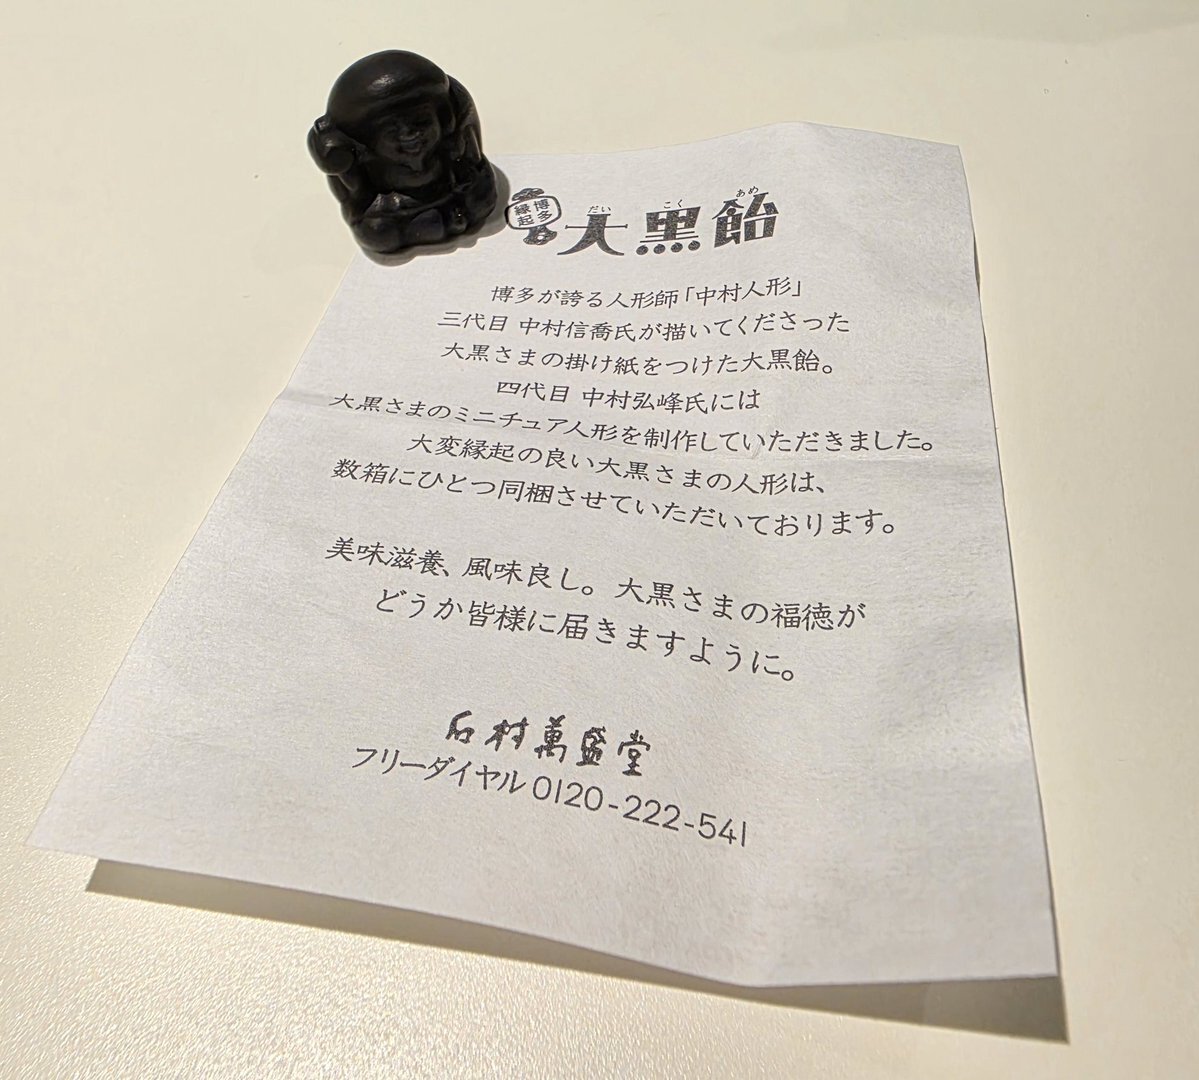 博多縁起
だいこくあめ
大黒飴
博多が誇る人形師「中村人形」
三代目 中村信喬氏が描いてくださった
大黒さまの掛け紙をつけた大黒飴。
四代目 中村弘峰氏には
大黒さまのミニチュア人形を制作していただきました。
大変縁起の良い大黒さまの人形は、
数箱にひとつ同梱させていただいております。
美味滋養、風味良し。大黒さまの福徳が
どうか皆様に届きますように。
石村萬盛堂
フリーダイヤル 0120-222-541